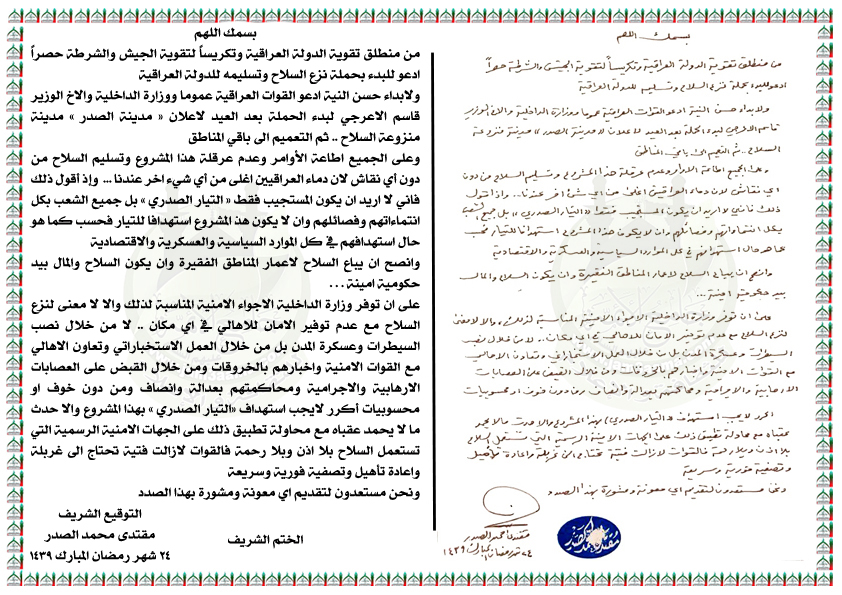 بسمك اللهم
من منطلق تقوية الدولة العراقية وتكريساً لتقوية الجيش والشرطة حصراً
ادعو للبدء بحملة نزع السلاح وتسليمه للدولة العراقية
ولابداء حسن النية ادعو القوات العراقية عموما ووزارة الداخلية والاخ الوزير
قاسم الاعرجي لبدء الحملة بعد العيد لاعلان « مدينة الصدر » مدينة
منزوعة السلاح .. ثم التعميم الى باقي المناطق
وعلى الجميع اطاعة الأوامر وعدم عرقلة هذا المشروع وتسليم السلاح من
دون أي نقاش لان دماء العراقيين اغلى من أي شيء اخر عندنا ... وإذ اقول ذلك
فاني لا اريد ان يكون المستجيب فقط « التيار الصدري » بل جميع الشعب بكل
انتماءاتهم وفصائلهم وان لا يكون هذا المشروع استهدافا للتيار فحسب كما هو
حال استهدافهم في كل الموارد السياسية والعسكرية والاقتصادية
وانصح ان يباع السلاح لاعمار المناطق الفقيرة وان يكون السلاح والمال بيد
حكومية امينة ...
على ان توفر وزارة الداخلية الاجواء الامنية المناسبة لذلك والا لا معنى لنزع
السلاح مع عدم توفير الامان للاهالي في اي مكان .. لا من خلال نصب
السيطرات وعسكرة المدن بل من خلال العمل الاستخباراتي وتعاون الاهالي
مع القوات الامنية واخبارهم بالخروقات ومن خلال القبض على العصابات
الارهابية والاجرامية ومحاكمتهم بعدالة وانصاف ومن دون خوف او
محسوبيات أكرر لايجب استهداف «التيار الصدري» بهذا المشروع والا حدث
ما لا يحمد عقباه مع محاولة تطبيق ذلك على الجهات الامنية الرسمية التي
تستعمل السلاح بلا اذن وبلا رحمة فالقوات لازالت فتية تحتاج الى غربلة
واعادة تأهيل وتصفية فورية وسريعة
ونحن مستعدون لتقديم اي معونة ومشورة بهذا الصدد
التوقيع الشريف
مقتدى محمد الصدر
الختم الشريف
٢٤ شهر رمضان المبارك ١٤٣٩
بسمك اللهم
من منطلق تقوية الدولة العراقية وتكريساً لتقوية الجيش والشرطة حصراً
ادعو للبدء بحملة نزع السلاح وتسليمه للدولة العراقية
ولابداء حسن النية ادعو القوات العراقية عموما ووزارة الداخلية والاخ الوزير
قاسم الاعرجي لبدء الحملة بعد العيد لاعلان «مدينة الصدر» مدينة منزوعة
السلاح .. ثم التعميم الى باقي المناطق
وعلى الجميع اطاعة الاوامر وعدم عرقلة هذا المشروع وتسليم السلاح من دون
اي نقاش لان دماء العراقيين اغلى من اي شيء اخر عندنا ... واذ اقول
ذلك فانني لا اريد ان يكون المستجيب فقط «التيار الصدري» بل جميع الشعب
بكل انتماءاتهم وفصائلهم وان لا يكون هذا المشروع استهدافا للتيار فحسب
كما هو حال استهدافهم في كل الموارد السياسية والعسكرية والاقتصادية
وانصح ان يباع السلاح لاعمار المناطق الفقيرة وان يكون السلاح والمال
بيد حكومية امينة ...
على ان توفر وزارة الداخلية الاجواء الامنية المناسبة لذلك والا لا معنى
لنزع السلاح مع عدم توفير الامان للاهالي في اي مكان .. لا من خلال نصب
السيطرات وعسكرة المدن بل من خلال العمل الاستخباراتي وتعاون الاهالي
مع القوات الامنية واخبارهم بالخروقات ومن خلال القبض على العصابات
الارهابية والاجرامية ومحاكمتهم بعدالة وانصاف ومن دون خوف او محسوبيات
اكرر لا يجب استهداف «التيار الصدري» بهذا المشروع والا حدث مالا يحمد
عقباه مع محاولة تطبيق ذلك على الجهات الامنية الرسمية التي تستعمل السلاح
بلا اذن وبلا رحمة فالقوات لازالت فتية تحتاج الى غربلة واعادة تأهيل
وتصفية فورية وسريعة
ونحن مستعدون لتقديم اي معونة ومشورة بهذا الصدد
مقتدى محمد الصدر
٢٤ شهر رمضان المبارك ١٤٣٩